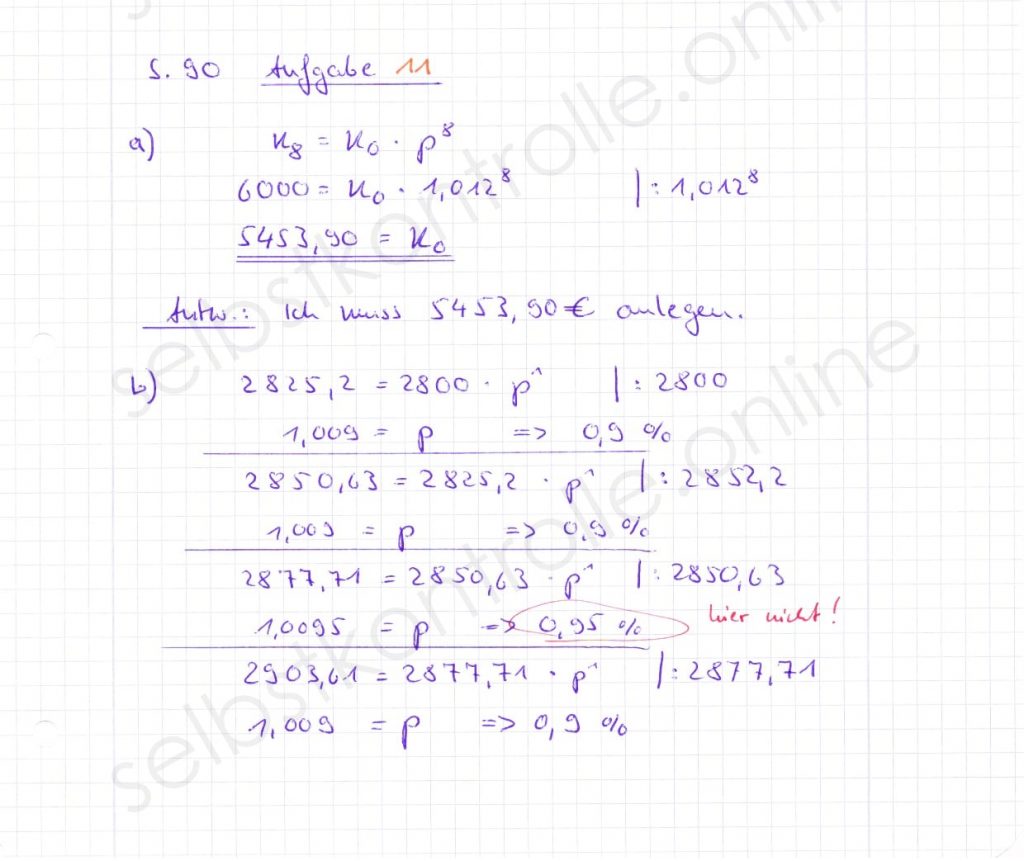 S. 90 Aufgabe 11
a) K₈ = K₀ · p⁸
6000 = K₀ · 1,012⁸ | : 1,012⁸
5453,90 = K₀
Antw.: Ich muss 5453,90 € anlegen.
b) 2825,2 = 2800 · p¹ | : 2800
1,009 = p => 0,9 %
2850,63 = 2825,2 · p¹ | : 2852,2
1,009 = p => 0,9 %
2877,71 = 2850,63 · p¹ | : 2850,63
1,0095 = p => 0,95 % hier nicht!
2903,61 = 2877,71 · p¹ | : 2877,71
1,009 = p => 0,9 %
selbstkontrolle.online
selbstkontrolle.online